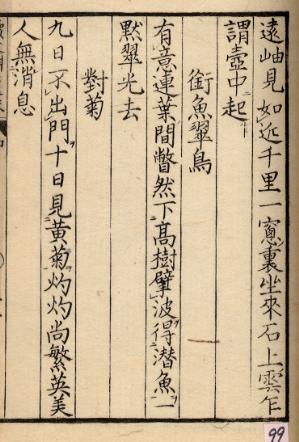 遠岫見如近千里一窻裏坐來石上雲乍
謂壺中起
銜魚翠鳥
有意蓮葉間瞥然下高樹擘波得潜魚一
點翠光去
對菊
九日不出門十日見黃菊灼灼尚繁英美
人無消息
99